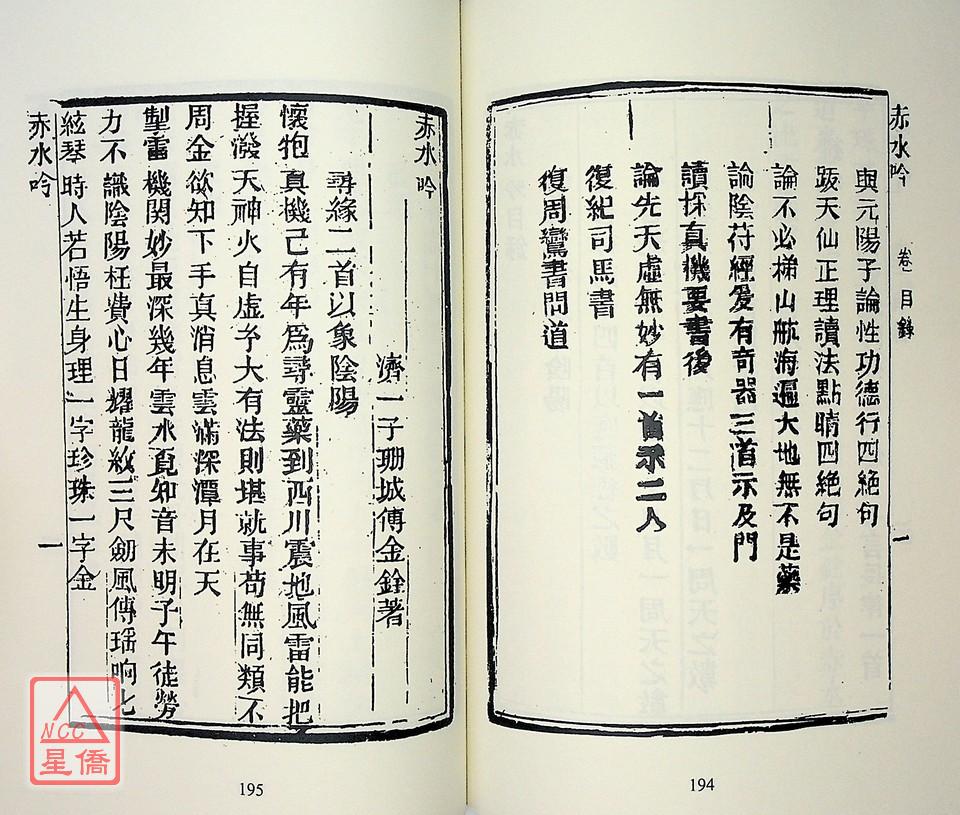 赤水吟 卷一 目錄 一
與元陽子論性功德行四絶句
跋天仙正理讀法點睛四絶句
論不必梯山航海遍大地無不是藥
論陰苻經爰有奇器三首示及門
讀採真機要書後
論先天虛無妙有一首示二人
復紀司馬書
復周鸞書問道
194
赤水吟
濟一子珊城傅金銓著
尋緣二首以象陰陽
懷抱真機已有年爲尋靈藥到西川震地風雷能把
握潑天神火自虛予大有法則堪就事苟無同類不
周金欲知下手真消息雲滿深潭月在天
掣雷機関妙最深幾年雲水覓知音未明子午徒勞
力不識陰陽枉費心日耀龍紋三尺劍風傳瑶响七
絃琴時人若悟生身理一字珍珠一字金
赤水吟 一
195
NCC
星僑